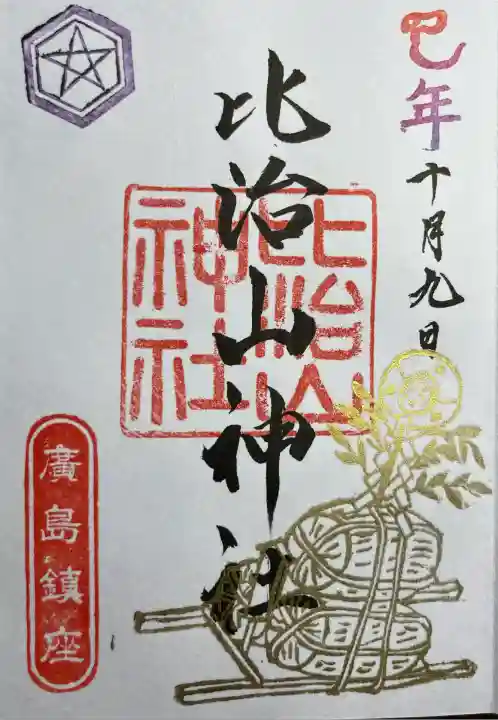 巳年十月九日
比治山神社
比治山
神社
廣島鎮座